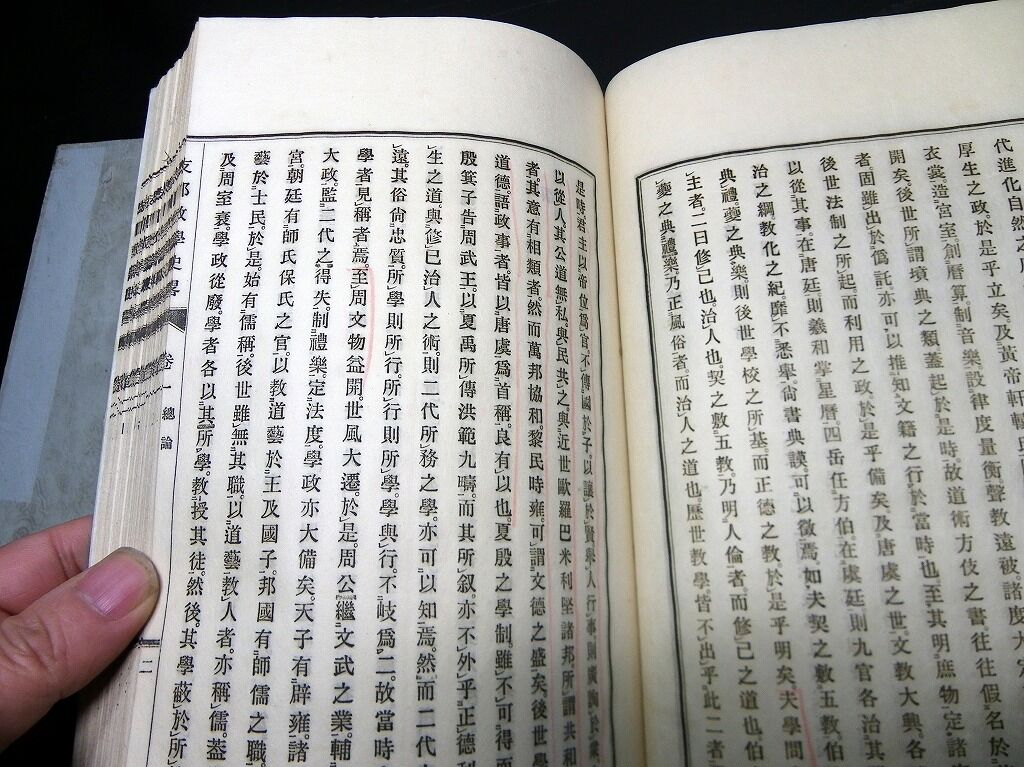 代進化自然之
厚生之政。於是乎立矣。及黃帝軒轅氏
衣裳。造宮室。創曆算。制音樂。設律度量衡。聲教遠被。諸度大定
開矣。後世所謂墳典之類。蓋起於是時。故道術方伎之書。往往假名於
者。固雖出於僞託。亦可以推知文籍之行於當時也。至其明庶物定諸
後世法制之所起。而利用之政。於是乎備矣。及唐虞之世。文教大興。各
以從其事。在唐廷則羲和掌星曆。四岳任方伯。在虞廷則九官各治其
治之綱。敎化之紀。靡不悉擧。尙書典謨。可以徵焉。如夫契之敷五敎。伯
典禮。夔之典樂。則後世學校之所基。而正德之敎。於是乎明矣。夫學問
主者。二曰修己也。治人也。契之敷五敎。乃明人倫者。而修己之道也。伯
夔之典禮樂。乃正風俗者。而治人之道也。歷世敎學。皆不出乎此二者
是時君主以帝位爲官。不傳國於子。以讓於賢。擧人行事。則廣詢於衆
以從人。其公道無私。與民共之。與近世歐羅巴米利堅諸邦所謂共和
者。其意有相類者。然而萬邦協和。黎民時雍。可謂文德之盛矣。後世學
道德。語政事者。皆以唐虞爲首稱。良有以也。夏殷之學制。雖不可得而
殷箕子告周武王。以夏禹所傳洪範九疇。而其所叙。亦不外乎正德利
生之道與修己治人之術。則二代所務之學。亦可以知焉。然而二代
遠。其俗尙忠質。所學則所行。所行則所學。學與行。不岐爲二。故當時
學者見稱者焉。至周文物益開。世風大遷。於是周公繼文武之業。輔
大政。監二代之得失。制禮樂。定法度。學政亦大備矣。天子有辟雍。諸
宮。朝廷有師氏保氏之官。以敎道藝於王及國子。邦國有師儒之職
藝於士民。於是始有儒稱。後世雖無其職。以道藝敎人者。亦稱儒。蓋
及周室衰。學政從廢。學者各以其所學。敎授其徒。然後其學蔽於所
支那敎學史畧 卷一 總論 二